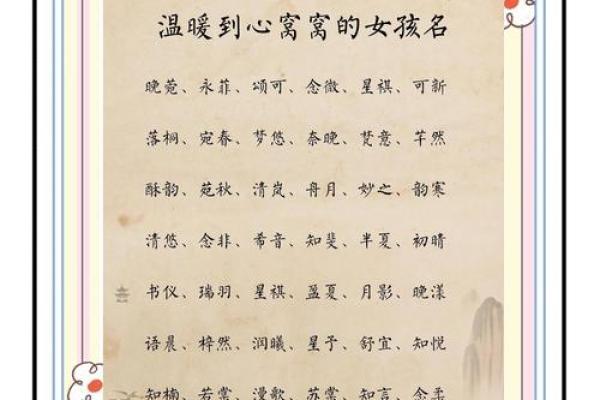 温暖到心窝窝的女孩名
晚菀、永菲、颂可、念微、星祺、可新
落桐、宛春、梦悠、奈晚、梵意、芊然
酥韵、苑秋、清岚、舟月、妙之、韵寒
清悠、念非、希音、知斐、半夏、初晴
书仪、瑞羽、星祺、盈夏、月影、晚漾
语晨、梓然、润曦、星予、舒宜、知悦
知楠、若棠、漫歌、苏棠、知言、念柔